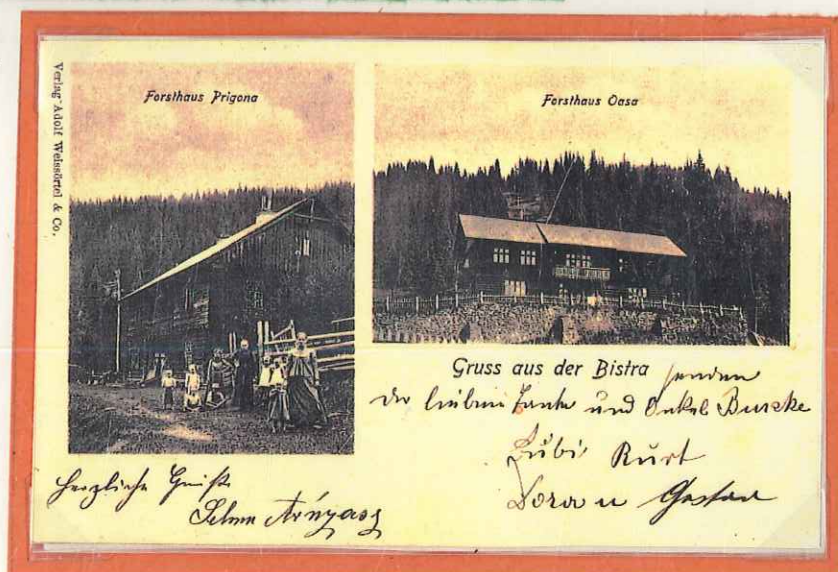 Verlag Adolf Weissörtel & Co.
Forsthaus Prigona
Forsthaus Oasa
Gruss aus der Bistra senden
der lieben Tante und Onkel
Kurt
Dora u Gustav
Herzliche Grüße
Selma